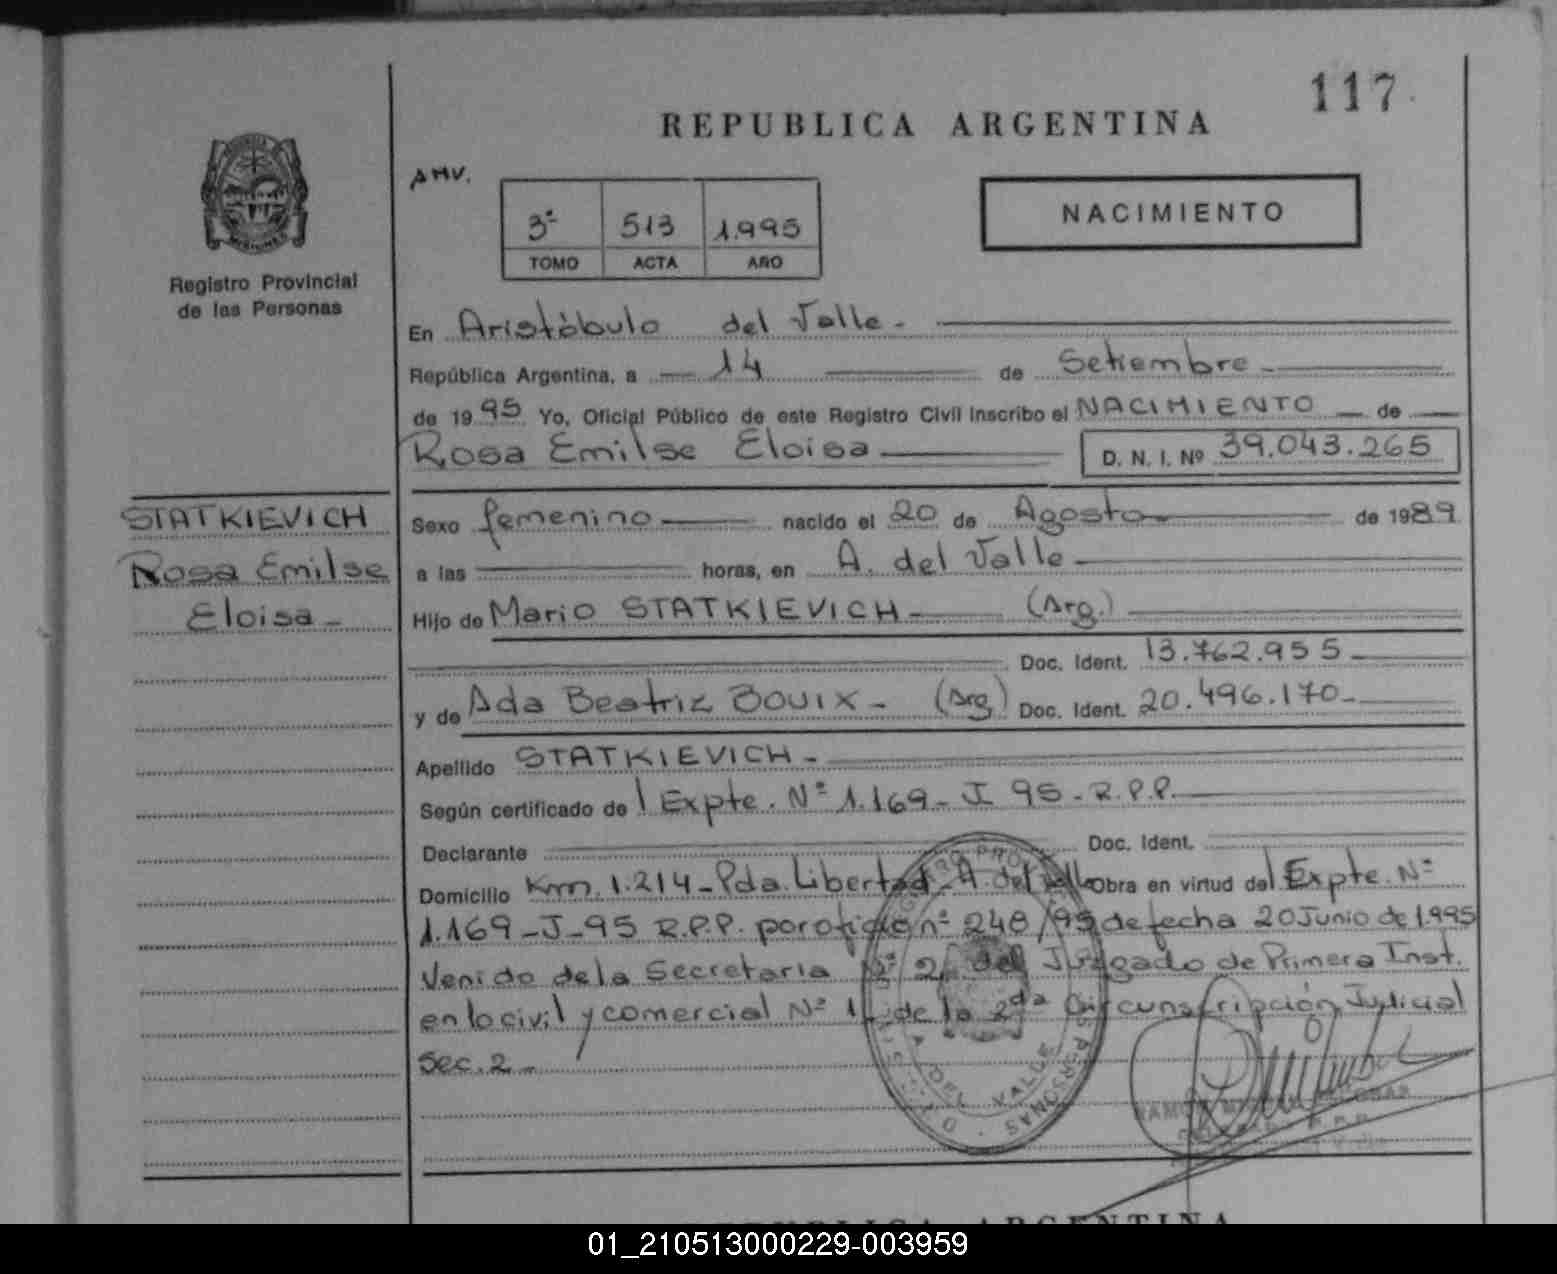 117
REPUBLICA ARGENTINA
AMV.
3º 513 1.995
TOMO ACTA AÑO
NACIMIENTO
MISIONES
Registro Provincial
de las Personas
En Aristóbulo del Valle.-
República Argentina, a 14 de Setiembre -
de 1995 Yo, Oficial Público de este Registro Civil inscribo el NACIMIENTO de
Rosa Emilse Eloisa
D. N. I. Nº 39.043.265
STATKIEVICH
Rosa Emilse
Eloisa -
Sexo femenino nacido el 20 de Agosto de 1989
a las horas, en A. del Valle
Hijo de Mario STATKIEVICH - (Arg.)
Doc. Ident. 13.762.955
y de Ada Beatriz BOUIX - (Arg) Doc. Ident. 20.496.170-
Apellido STATKIEVICH -
Según certificado de Expte. Nº 1.169 - J 95 - R.P.P.
Declarante Doc. Ident.
Domicilio Km. 1.214 - Pda. Libertad - A. del Valle Obra en virtud del Expte. Nº
1.169 - J - 95 R.P.P. por oficio nº 248/95 de fecha 20 Junio de 1.995
Venido de la Secretaria Nº 2 del Juzgado de Primera Inst.
en lo civil y comercial Nº 1 de la 2da Circunscripción Judicial
Sec. 2 -
A. DEL VALLE
REPUBLICA ARGENTINA
01_210513000229-003959